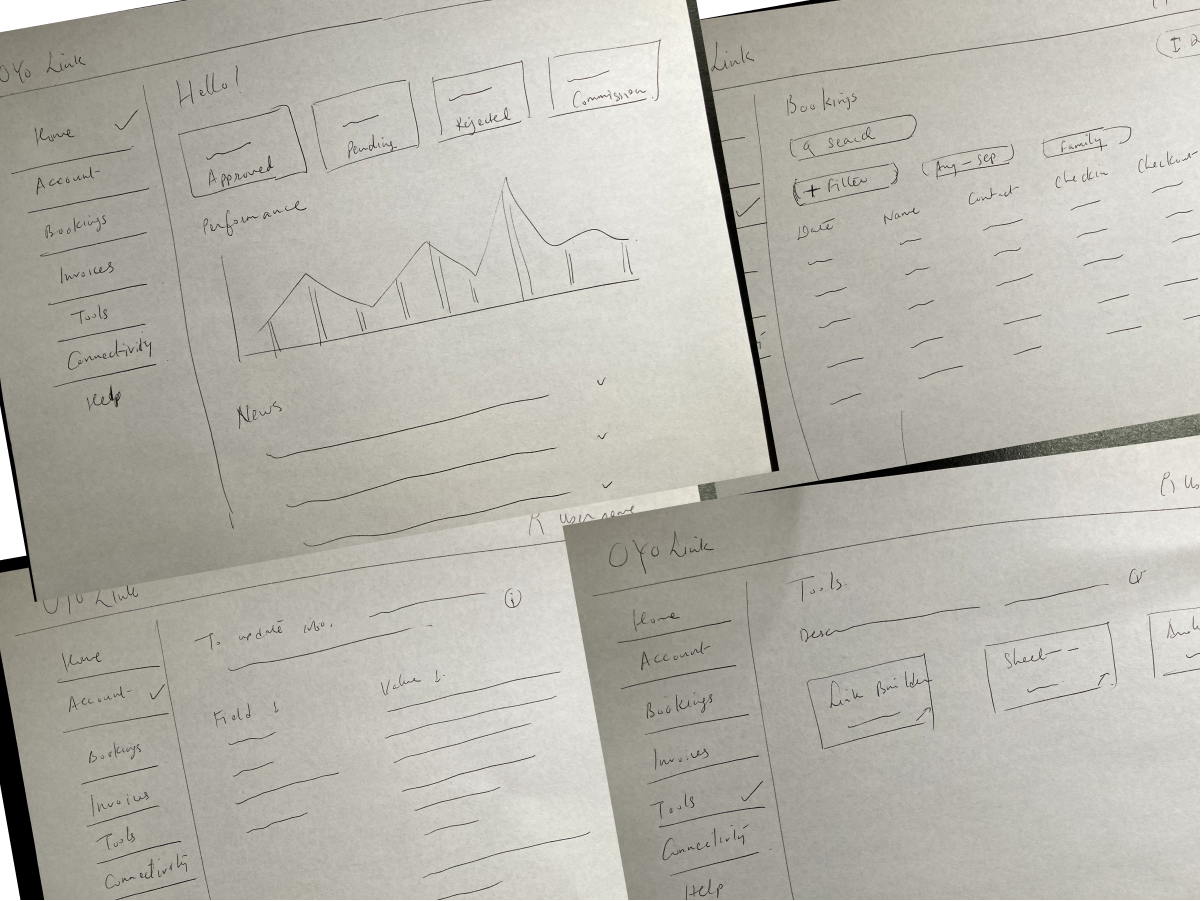 OYO Link
Home
Account
Bookings
Invoices
Tools
Connectivity
Help
Hello!
Approved
Pending
Rejected
Commission
Performance
News
Link
Bookings
search
+ Filter
Aug - Sep
Family
Date
Name
Contact
Checkin
Checkout
OYO Link
User name
Home
Account
Bookings
Invoices
Tools
Connectivity
To update info.
i
Field
Value
OYO Link
Home
Account
Bookings
Invoices
Tools
Connectivity
Help
Tools
Desc
Link Builder
Sheet